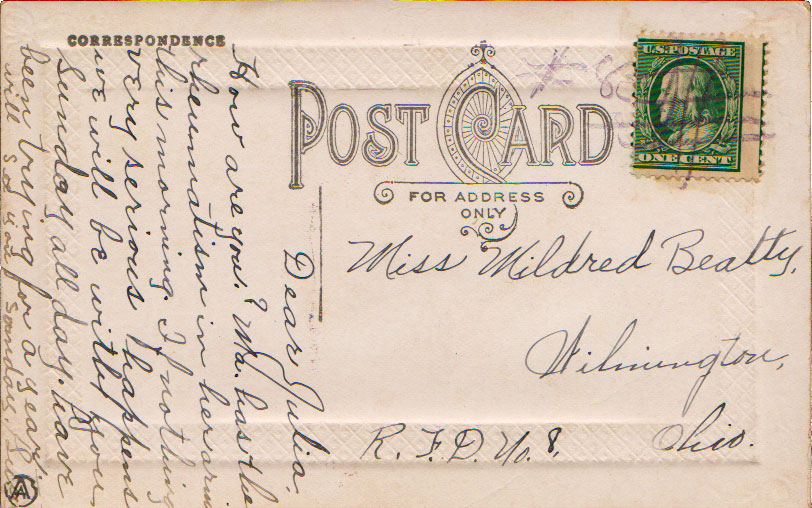 CORRESPONDENCE
POST CARD
FOR ADDRESS
ONLY
U.S. POSTAGE
ONE CENT
Dear Julia,
How are you? Ma. has the
rheumatism in her arm
this morning. If nothing
very serious happens
we will be with you
Sunday all day. have
been trying for a year.
will see you Sunday.
Miss Mildred Beatty,
Wilmington,
R. F. D. No. 8,
Ohio.
A